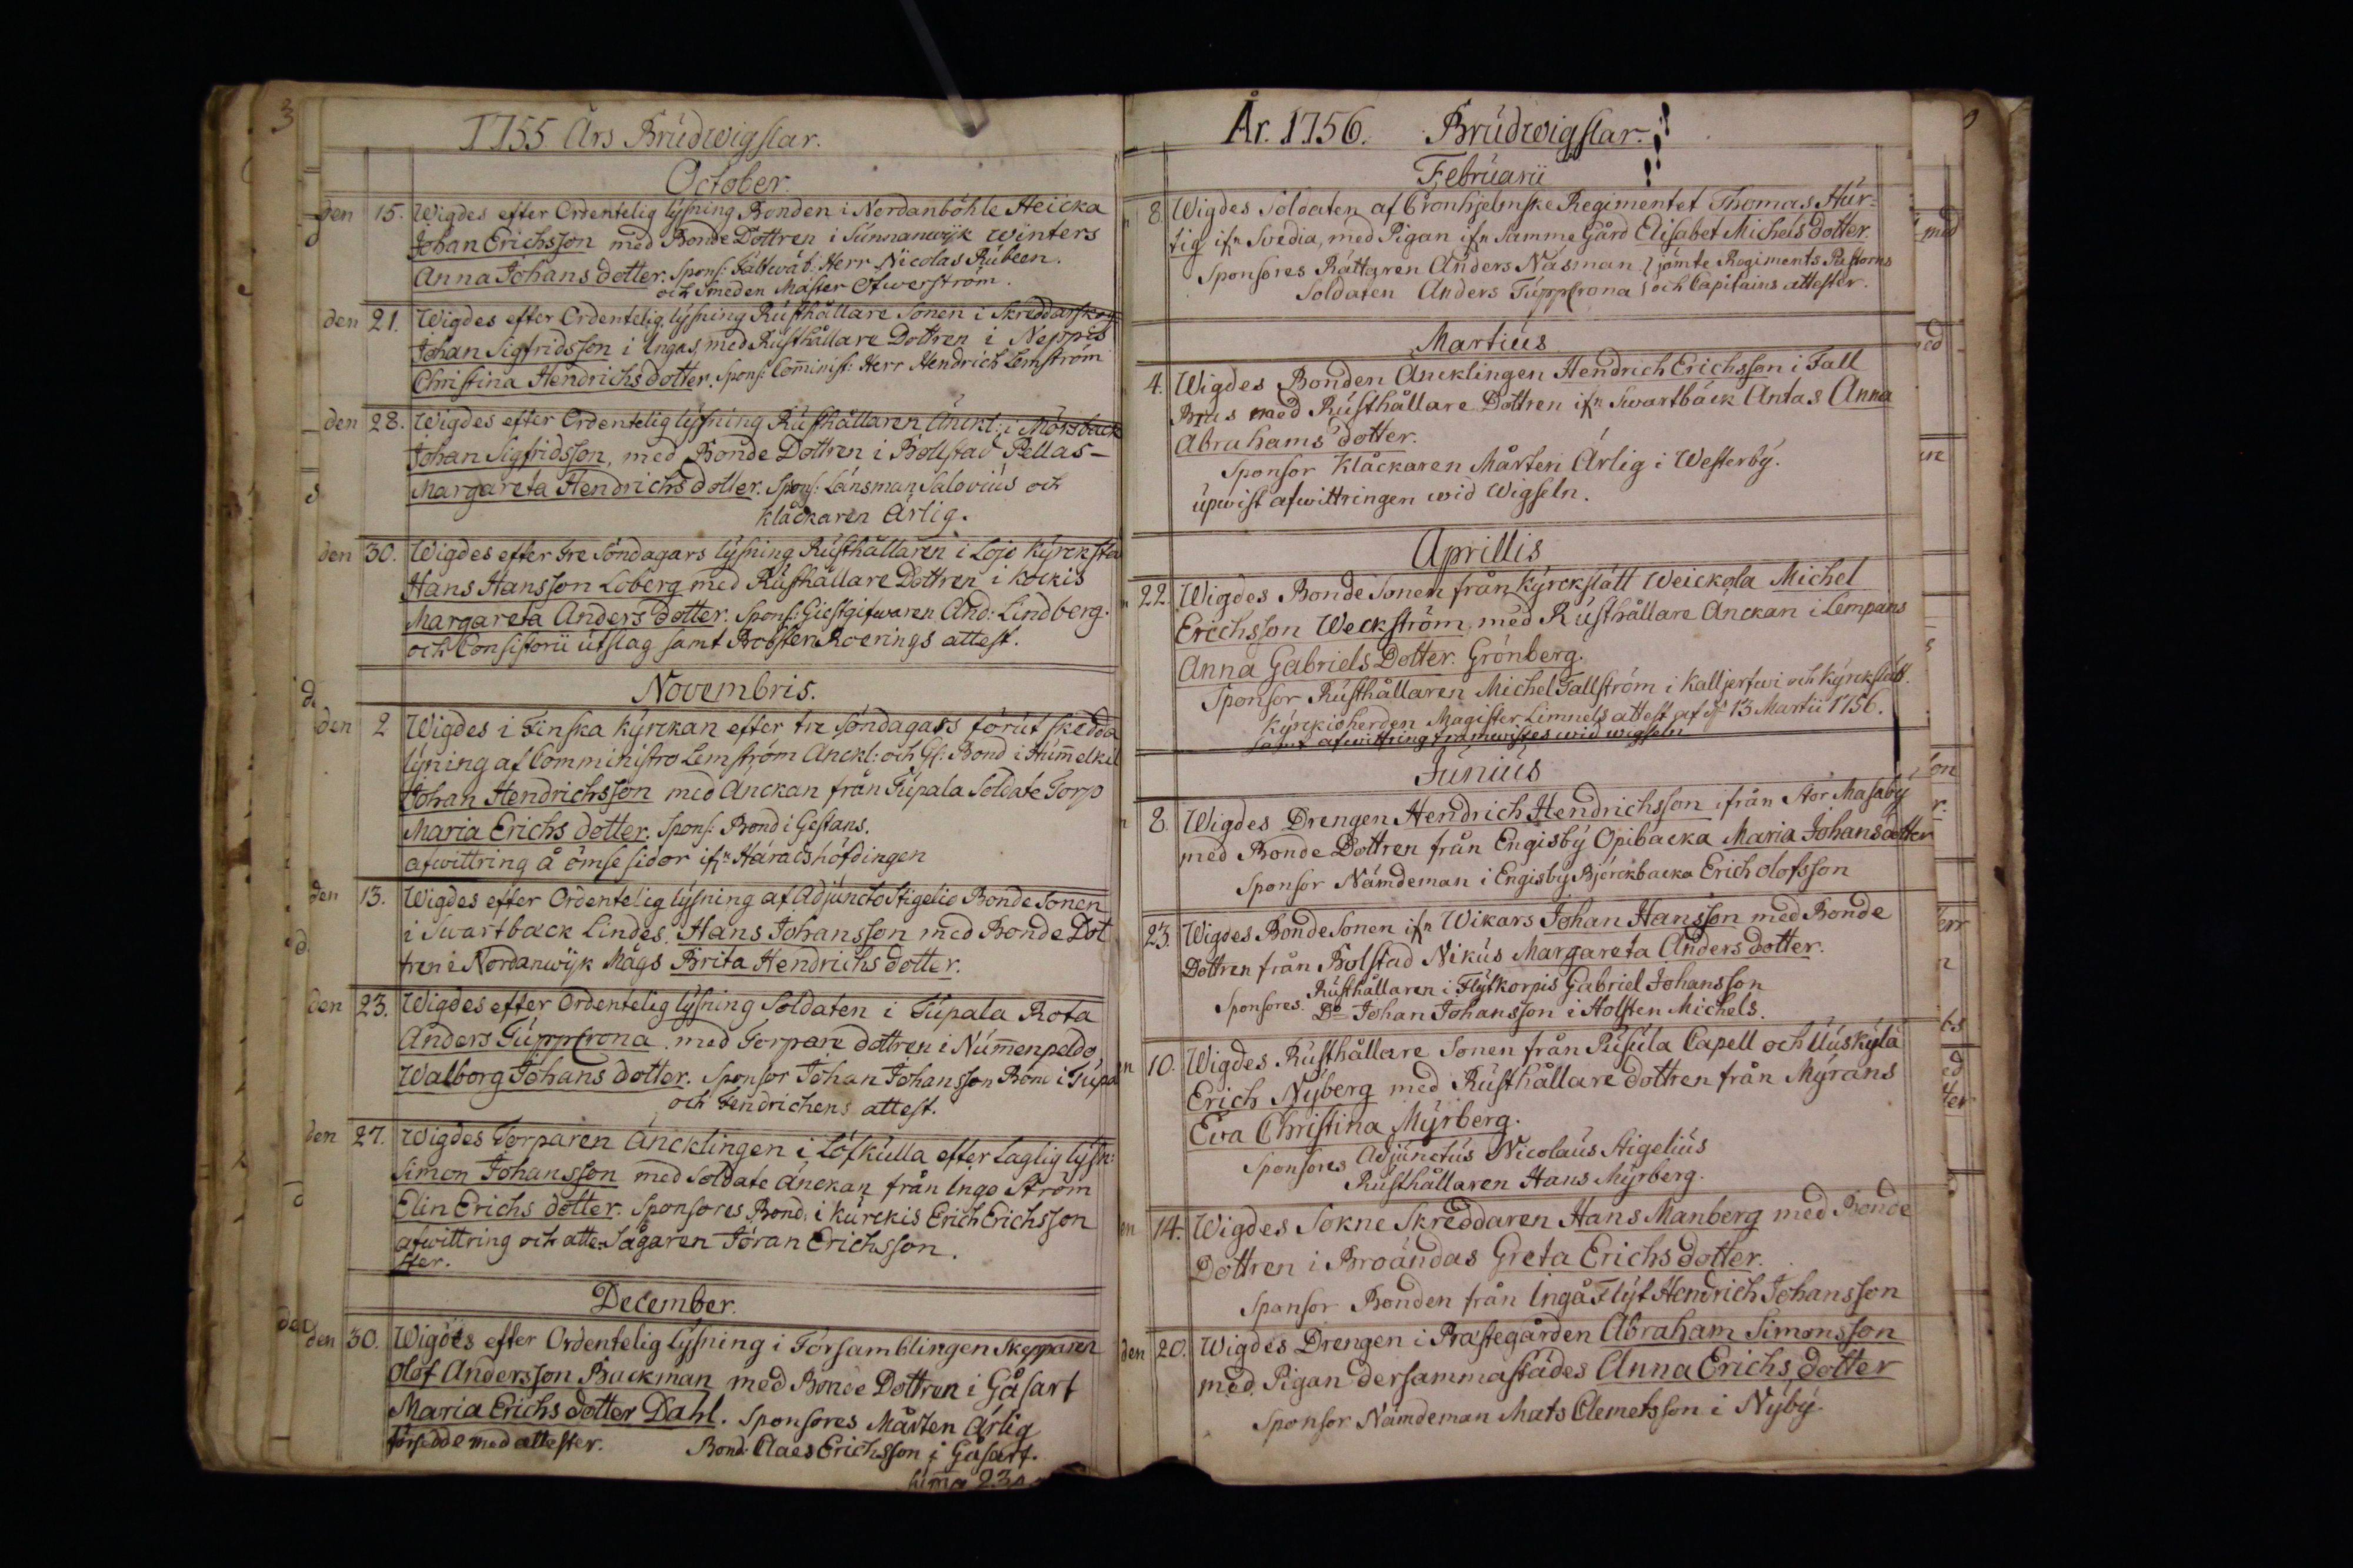 3
1755 Års Brudwigslar.
October.
den 15. Wigdes efter Ordentelig lysning Bonden i Nordanböhle Heicka
Johan Erichsson med Bonde Dottren i Sunnanwijk Winters
Anna Johans dotter. Spons: Fältwäb: Herr Nicolas Rubeen.
och Smeden Mäster Ofwerström.
den 21. Wigdes efter Ordentelig lysning Rusthållare Sonen i Skreddarskog
Johan Sigfridsson i Ingås, med Rusthållare Dottren i Neppis
Christina Hendrichs dotter. Spons: Com̄inist: Herr Hendrich Lemström
den 28. Wigdes efter Ordentelig lysning Rusthållaren Anckl: i Mörsback
Johan Sigfridsson, med Bonde Dottren i Bollstad Pellas-
Margareta Hendrichs dotter. Spons: Länsman Salovius och
Klåckaren Ärlig.
den 30. Wigdes efter tre Söndagars lysning Rusthållaren i Lojo Kyrcksta
Hans Hansson Loberg med Rusthållare Dottren i Kockis
Margareta Anders dotter. Spons: Giestgifwaren And: Lindberg.
och Consistorii utslag samt Probsten Roerings attest.
Novembris.
den 2 Wigdes i Finska Kyrckan efter tre Söndagars förut skedda
lysning af Comministro Lemström Anckl: och Gl: Bond i Hum̄elkil
Johan Hendrichsson med Änckan från Tupala Soldate Torp
Maria Erichs dotter. Spons: Bond i Gestans.
afwittring å ömse sidor ifn Häradshöfdingen
den 13. Wigdes efter Ordentelig lysning af Adjuncto Stigelio Bonde Sonen
i Swartback Lindes. Hans Johansson med Bonde Dot
tren i Nordanwijk Mågs Brita Hendrichs dotter.
den 23. Wigdes efter Ordentelig lysning Soldaten i Tupala Rota
Anders Tuppcrona med Torpare dottren i Num̄enpeldo
Walborg Johans dotter. Sponsor Johan Johansson Bond i Tupa
och Fendrichens attest.
den 27. Wigdes Torparen Äncklingen i Löfkulla efter laglig lysn:
Simon Johansson med Soldate Änckan från Ingo Ström
Elin Erichs dotter. Sponsores Bond: i Kurckis Erich Erichsson
afwittring och atte- Sågaren Jöran Erichsson.
ster.
December.
den 30. Wigdes efter Ordentelig lysning i Församblingen Skepparen
Olof Andersson Backman med Bonde Dottren i Gåsart
Maria Erichs dotter Dahl. Sponsores Mårten Ärlig
försedde med attester. Bond: Claes Erichsson i Gåsart.
Sum̄a 23
År. 1756. Brudwigslar.
Februarii
8. Wigdes Soldaten af Cronhjelmske Regimentet Thomas Hur-
tig ifn Svedia, med Pigan ifn Samme Gård Elisabet Michels dotter.
Sponsores Rättaren Anders Näsman } jämte Regiments Pastorns
Soldaten Anders Tuppcrona } och Capitains attester.
Martius
4. Wigdes Bonden Äncklingen Hendrich Erichsson i Fall
Brus med Rusthållare Dottren ifn Swartbäck Antas Anna
Abrahams dotter.
Sponsor Klåckaren Mårten Ärlig i Westerby.
upwist afwittringen wid Wigseln.
Aprillis
22. Wigdes Bonde Sonen från Kyrckslätt Weickola Michel
Erichsson Weckström, med Rusthållare Änckan i Lempans
Anna Gabriels Dotter. Grönberg.
Sponsor Rusthållaren Michel Fallström i Kalljerfwi och Kyrckslätt.
Kyrckioherden Magister Limnels attest af d 13 Martii 1756.
samt afwittring framwistes wid wigseln
Junius
8. Wigdes Drengen Hendrich Hendrichsson ifrån Stor Masaby
med Bonde Dottren från Engisby Opibacka Maria Johansdotter
Sponsor Nämdeman i Engisby Björckbacka Erich Olofsson
23. Wigdes Bonde Sonen ifn Wikars Johan Hansson med Bonde
Dottren från Bolstad Nikus Margareta Anders dotter.
Sponsores. Rusthållaren i Flytkorpis Gabriel Johansson
Do Johan Johansson i Holsten Michels.
10. Wigdes Rusthållare Sonen från Pusula Capell och Uuskylä
Erich Nyberg med Rusthållare dottren från Myrans
Eva Christina Myrberg.
Sponsores Adjunctus Nicolaus Stigelius
Rusthållaren Hans Myrberg.
14. Wigdes Sokne Skreddaren Hans Manberg med Bonde
Dottren i Broändas Greta Erichs dotter.
Sponsor Bonden från Ingå Flyt Hendrich Johansson
den 20. Wigdes Drengen i Prästegården Abraham Simonsson
med Pigan dersammastädes Anna Erichs dotter
Sponsor Nämdeman Mats Clemetsson i Nyby.